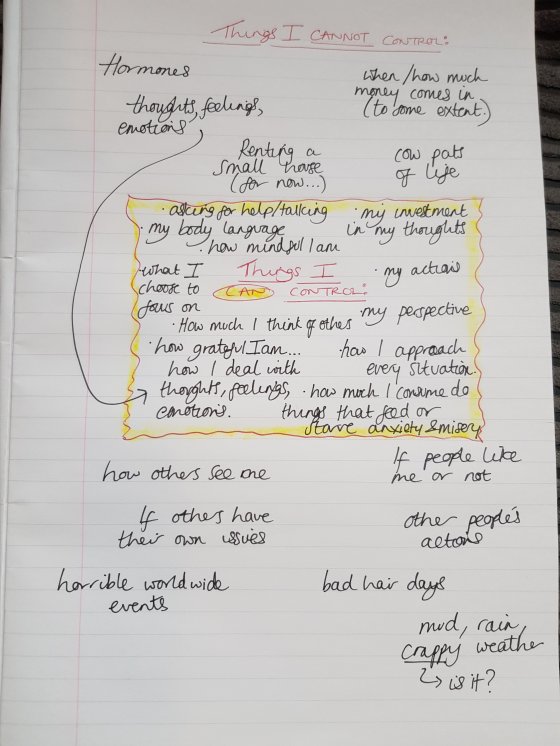 Things I CANNOT CONTROL:
Hormones
when/how much
money comes in
(to some extent.)
thoughts, feelings,
emotions
Renting a
small house
(for now...)
cow pats
of life
· asking for help/talking
· my investment
in my thoughts
· my body language
· how mindful I am
what I
choose to
focus on
Things I
CAN CONTROL:
· my actions
· my perspective
· How much I think of others
· how grateful I am...
how I approach
every situation.
how I deal with
thoughts, feelings,
emotions.
· how much I consume do
things that feed or
starve anxiety & misery
how others see me
If people like
me or not
If others have
their own issues
other people's
actions
horrible worldwide
events
bad hair days
mud, rain,
crappy weather
↳ is it?